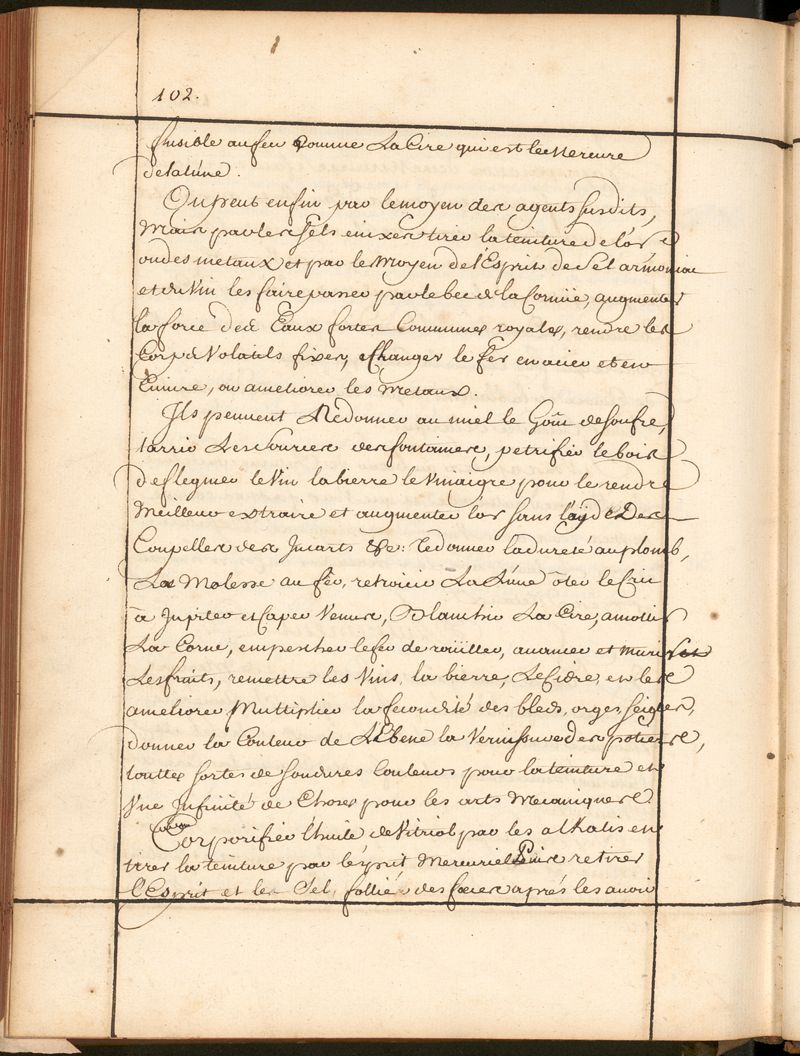 102.
fusible au feu comme La Cire qui est le Mercure
de la lune.
On peut enfin par le moyen des agents susdits,
Mais par les sels enixes tirer la teinture de l'or
ou des metaux et par le Moyen de l'Esprit de Sel armoniac
et de Vin les faire passer par le bec de la Cornüe, augmenter
la force des Eaux fortes Communes royales, rendre les
Corps Volatils fixes, Changer le fer en acier et en
Cuivre, ou ameliorer les Metaux.
Ils peuvent Redonner au miel le Goût de soufre,
tarrir Les sources des fontaines, petrifier le bois
deflegmer le Vin la bierre le Vinaigre pour le rendre
Meilleur extraire et augmenter l'or sans l'ayde Des
Coupelles des Incarts &c: redonner la dureté au plomb,
La Molesse au fer, retrecir La Lune ôter le Cri
à Jupiter et Caper Venus, Blanchir La Cire, amollir
La Corne, empescher le fer de roüiller, avancer et murir
Les fruits, remettre les Vins, la bierre, Le Cidre, et les
ameliorer Multiplier la fecondité des bleds, orges, seigles,
donner la Couleur de L'Ebene la Vernissure des potiers,
touttes sortes de soudures Couleurs pour la teinture et
Vne Infinité de Choses pour les arts Mecaniques.
Corporifier l'huile de Vitriol par les alkalis en
tirer la teinture par l'esprit Mercuriel Puis retirer
l'Esprit et le Sel, des feces aprés les avoir